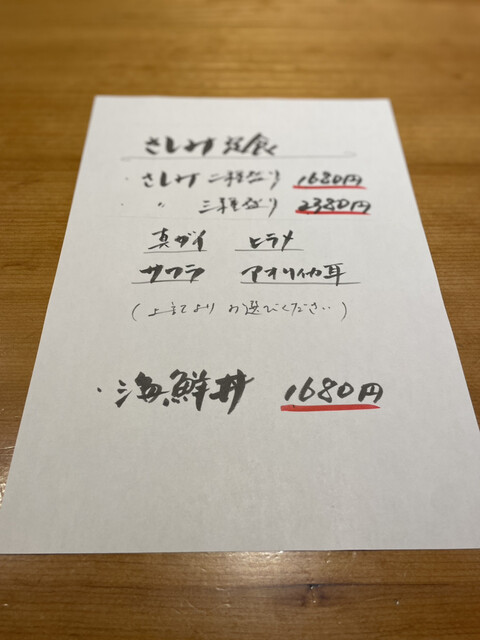 さしみ定食
・さしみ 二種盛り 1680円
・ 〃 三種盛り 2380円
真ダイ ヒラメ
サワラ アオリイカ耳
(上記よりお選びください)
・海鮮丼 1680円